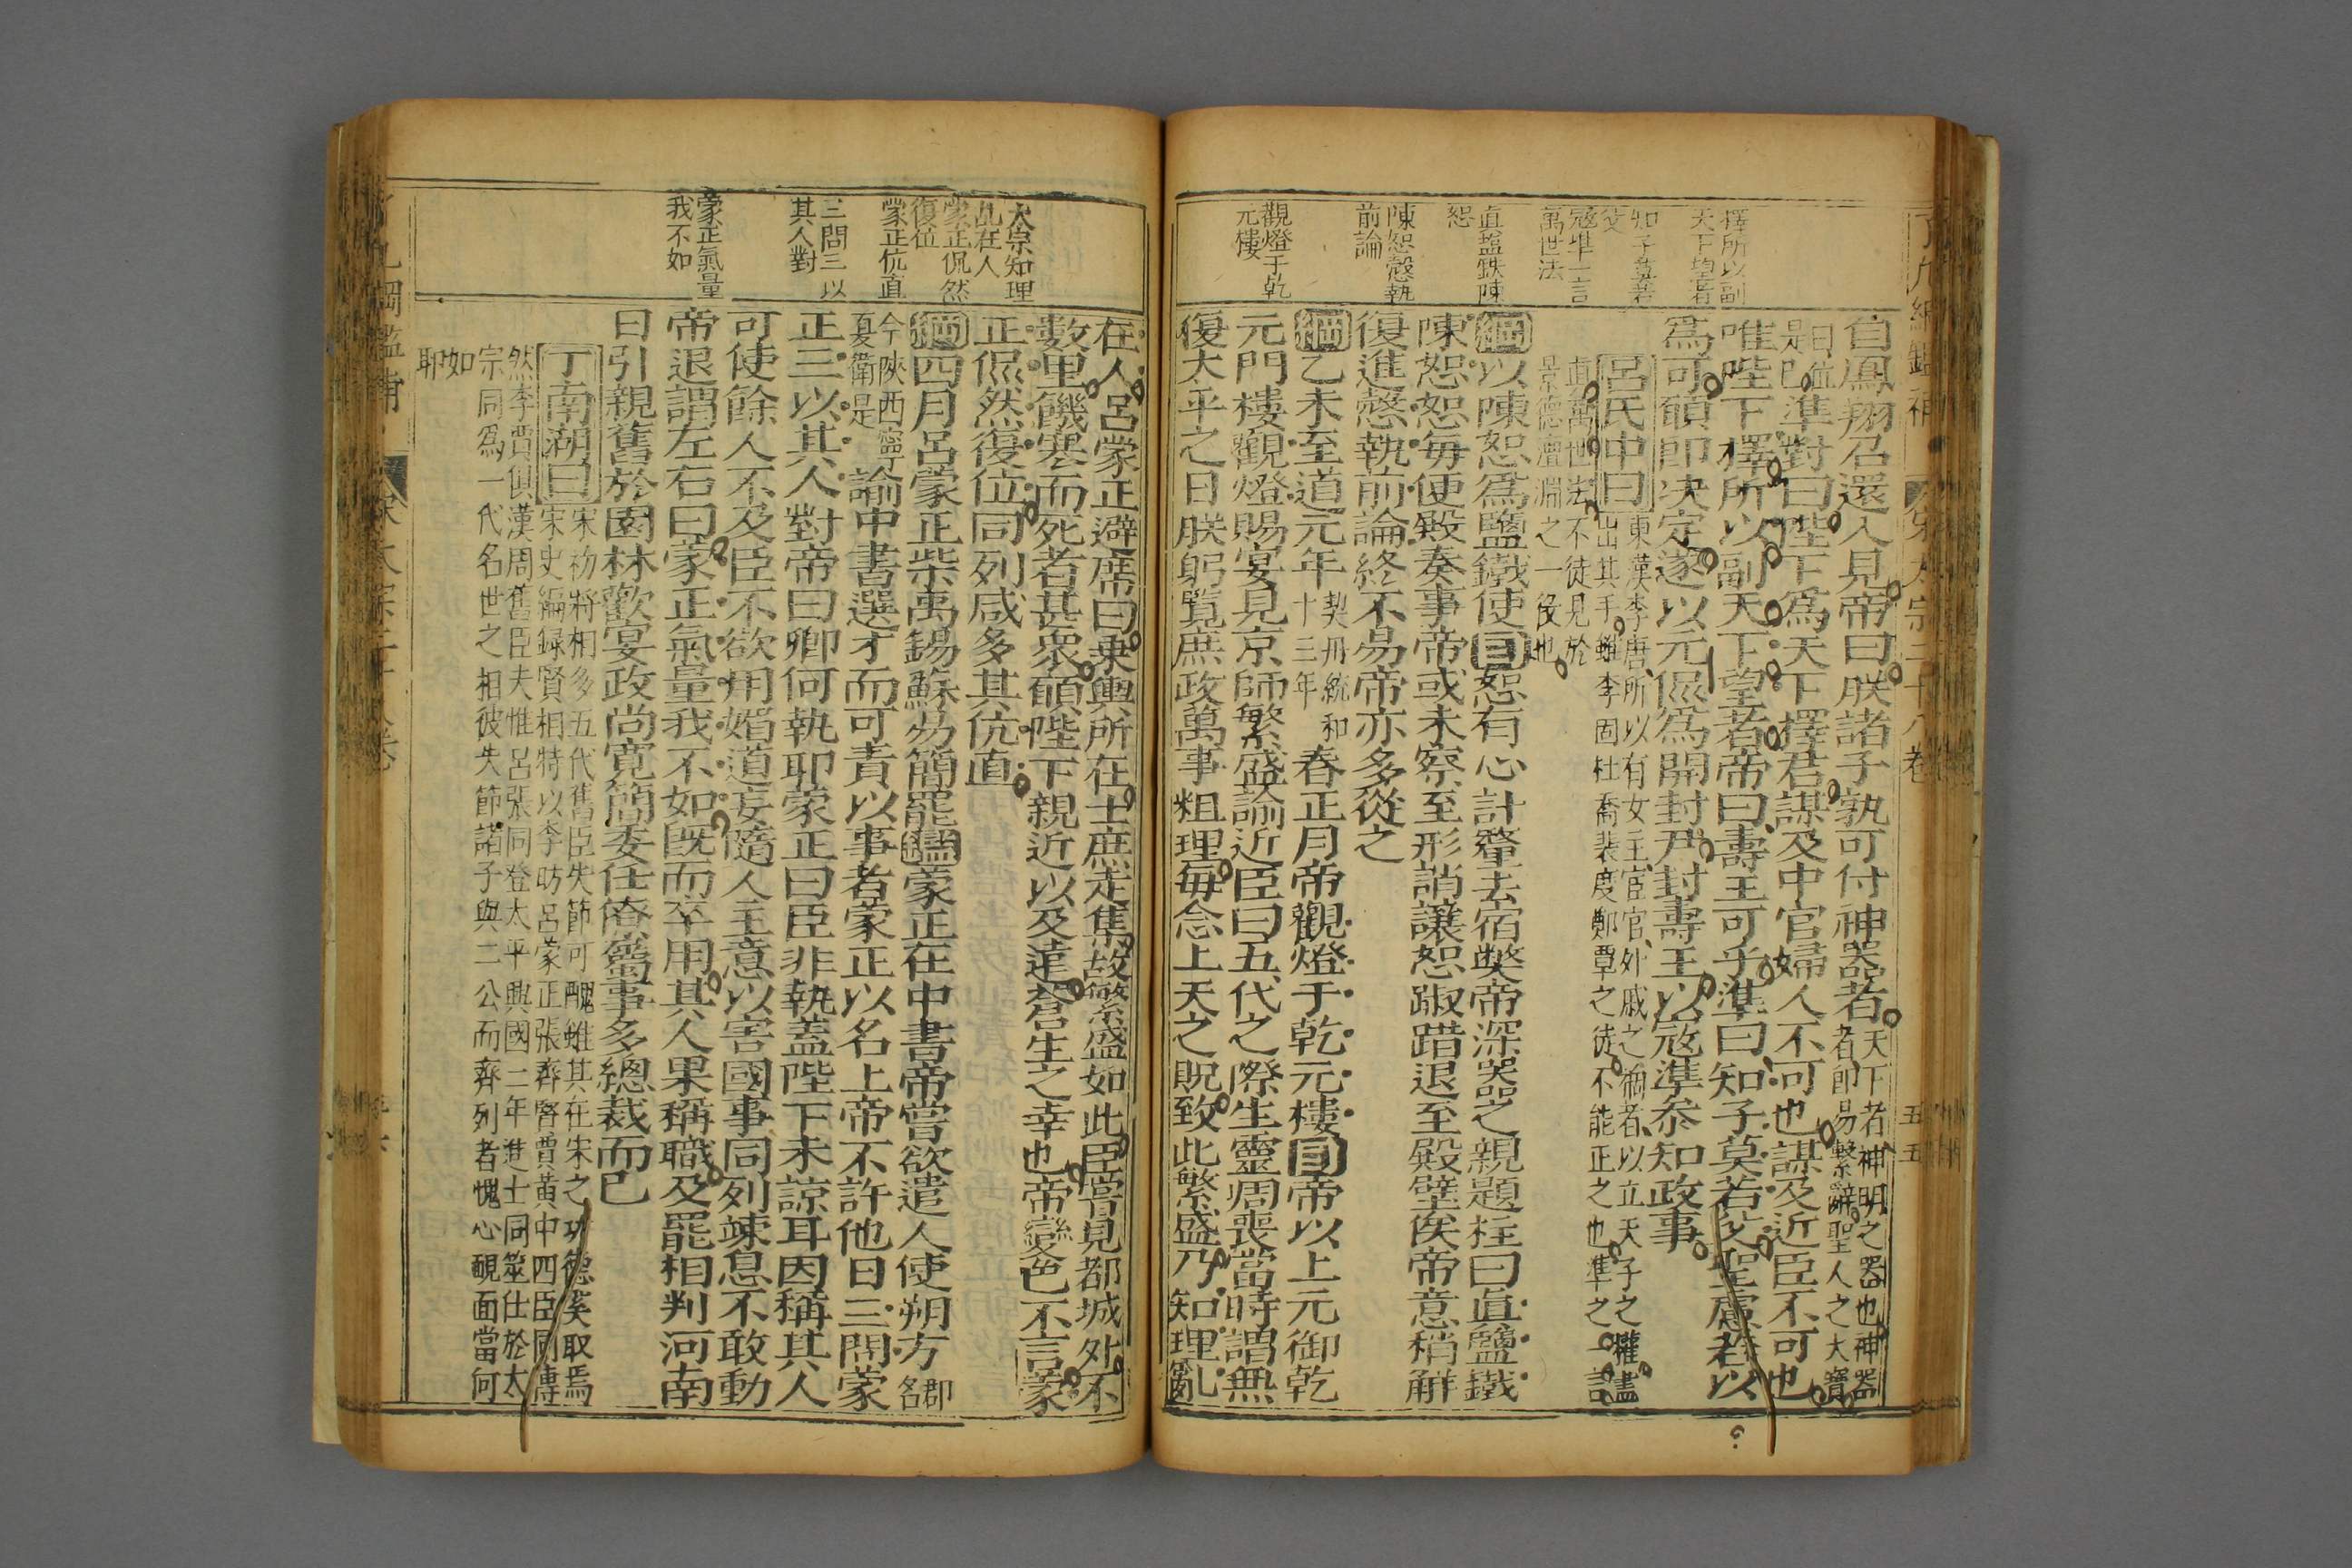 擇所以副
天下望者
知子莫若
父
寇準一言
萬世法
直鹽鉄陳
恕
陳恕愨執
前論
觀燈于乾
元樓
自鳳翔召還入見帝曰朕諸子孰可付神器者天下者神明之器也神器
者即易繫辭聖人之大寶
曰位
是已準對曰陛下爲天下擇君謀及中官婦人不可也謀及近臣不可也
唯陛下擇所以副天下望者帝曰壽王可乎準曰知子莫若父聖慮若以
爲可願即决定遂以元偘爲開封尹封壽王以寇準叅知政事
呂氏中曰東漢李唐所以有女主宦官外戚之禍者以立天子之權盡
出其手雖李固杜喬裴度鄭覃之徒不能正之也準之一言
直萬世法不徒見於
景德澶淵之一役也
綱以陳恕爲鹽鐵使目恕有心計釐去宿獘帝深器之親題柱曰真鹽鐵
陳恕恕每便殿奏事帝或未察至形誚讓恕踧踖退至殿壁俟帝意稍解
復進愨執前論終不易帝亦多從之
綱乙未至道元年契丹統和
十三年春正月帝觀燈于乾元樓目帝以上元御乾
元門樓觀燈賜宴見京師繁盛諭近臣曰五代之際生靈凋喪當時謂無
復太平之日朕躬覽庶政萬事粗理每念上天之貺致此繁盛乃知理亂
太宗知理
乱在人
蒙正侃然
復位
蒙正伉直
三問三以
其人對
蒙正氣量
我不如
在人呂蒙正避席曰乗輿所在士庶走集故繁盛如此臣甞見都城外不
數里饑寒而死者甚衆願陛下親近以及遠蒼生之幸也帝變色不言蒙
正偘然復位同列咸多其伉直
綱四月呂蒙正柴禹錫蘇易簡罷鑑蒙正在中書帝嘗欲遣人使朔方郡名
今陝西寧
夏衛是諭中書選才而可責以事者蒙正以名上帝不許他日三問蒙
正三以其人對帝曰卿何執耶蒙正曰臣非執蓋陛下未諒耳因稱其人
可使餘人不及臣不欲用媚道妄隨人主意以害國事同列竦息不敢動
帝退謂左右曰蒙正氣量我不如既而卒用其人果稱職及罷相判河南
日引親舊於園林歡宴政尚寛簡委任僚屬事多總裁而已
丁南湖曰宋初將相多五代舊臣失節可醜雖其在宋之功德奚取焉
宋史編録賢相特以李昉呂蒙正張齊賢賈黄中四臣同傳
然李賈俱漢周舊臣夫惟呂張同登太平興國二年進士同筮仕於太
宗同爲一代名世之相彼失節諸子與二公而齊列者愧心靦面當何
如
耶